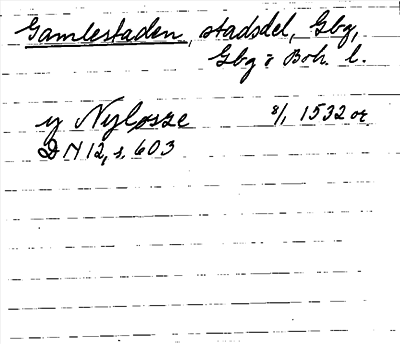 Gamlestaden, stadsdel, Gbg,
Gbg o Boh. l.
y Nyløsze 8/1 1532 or
DN 12, s. 603